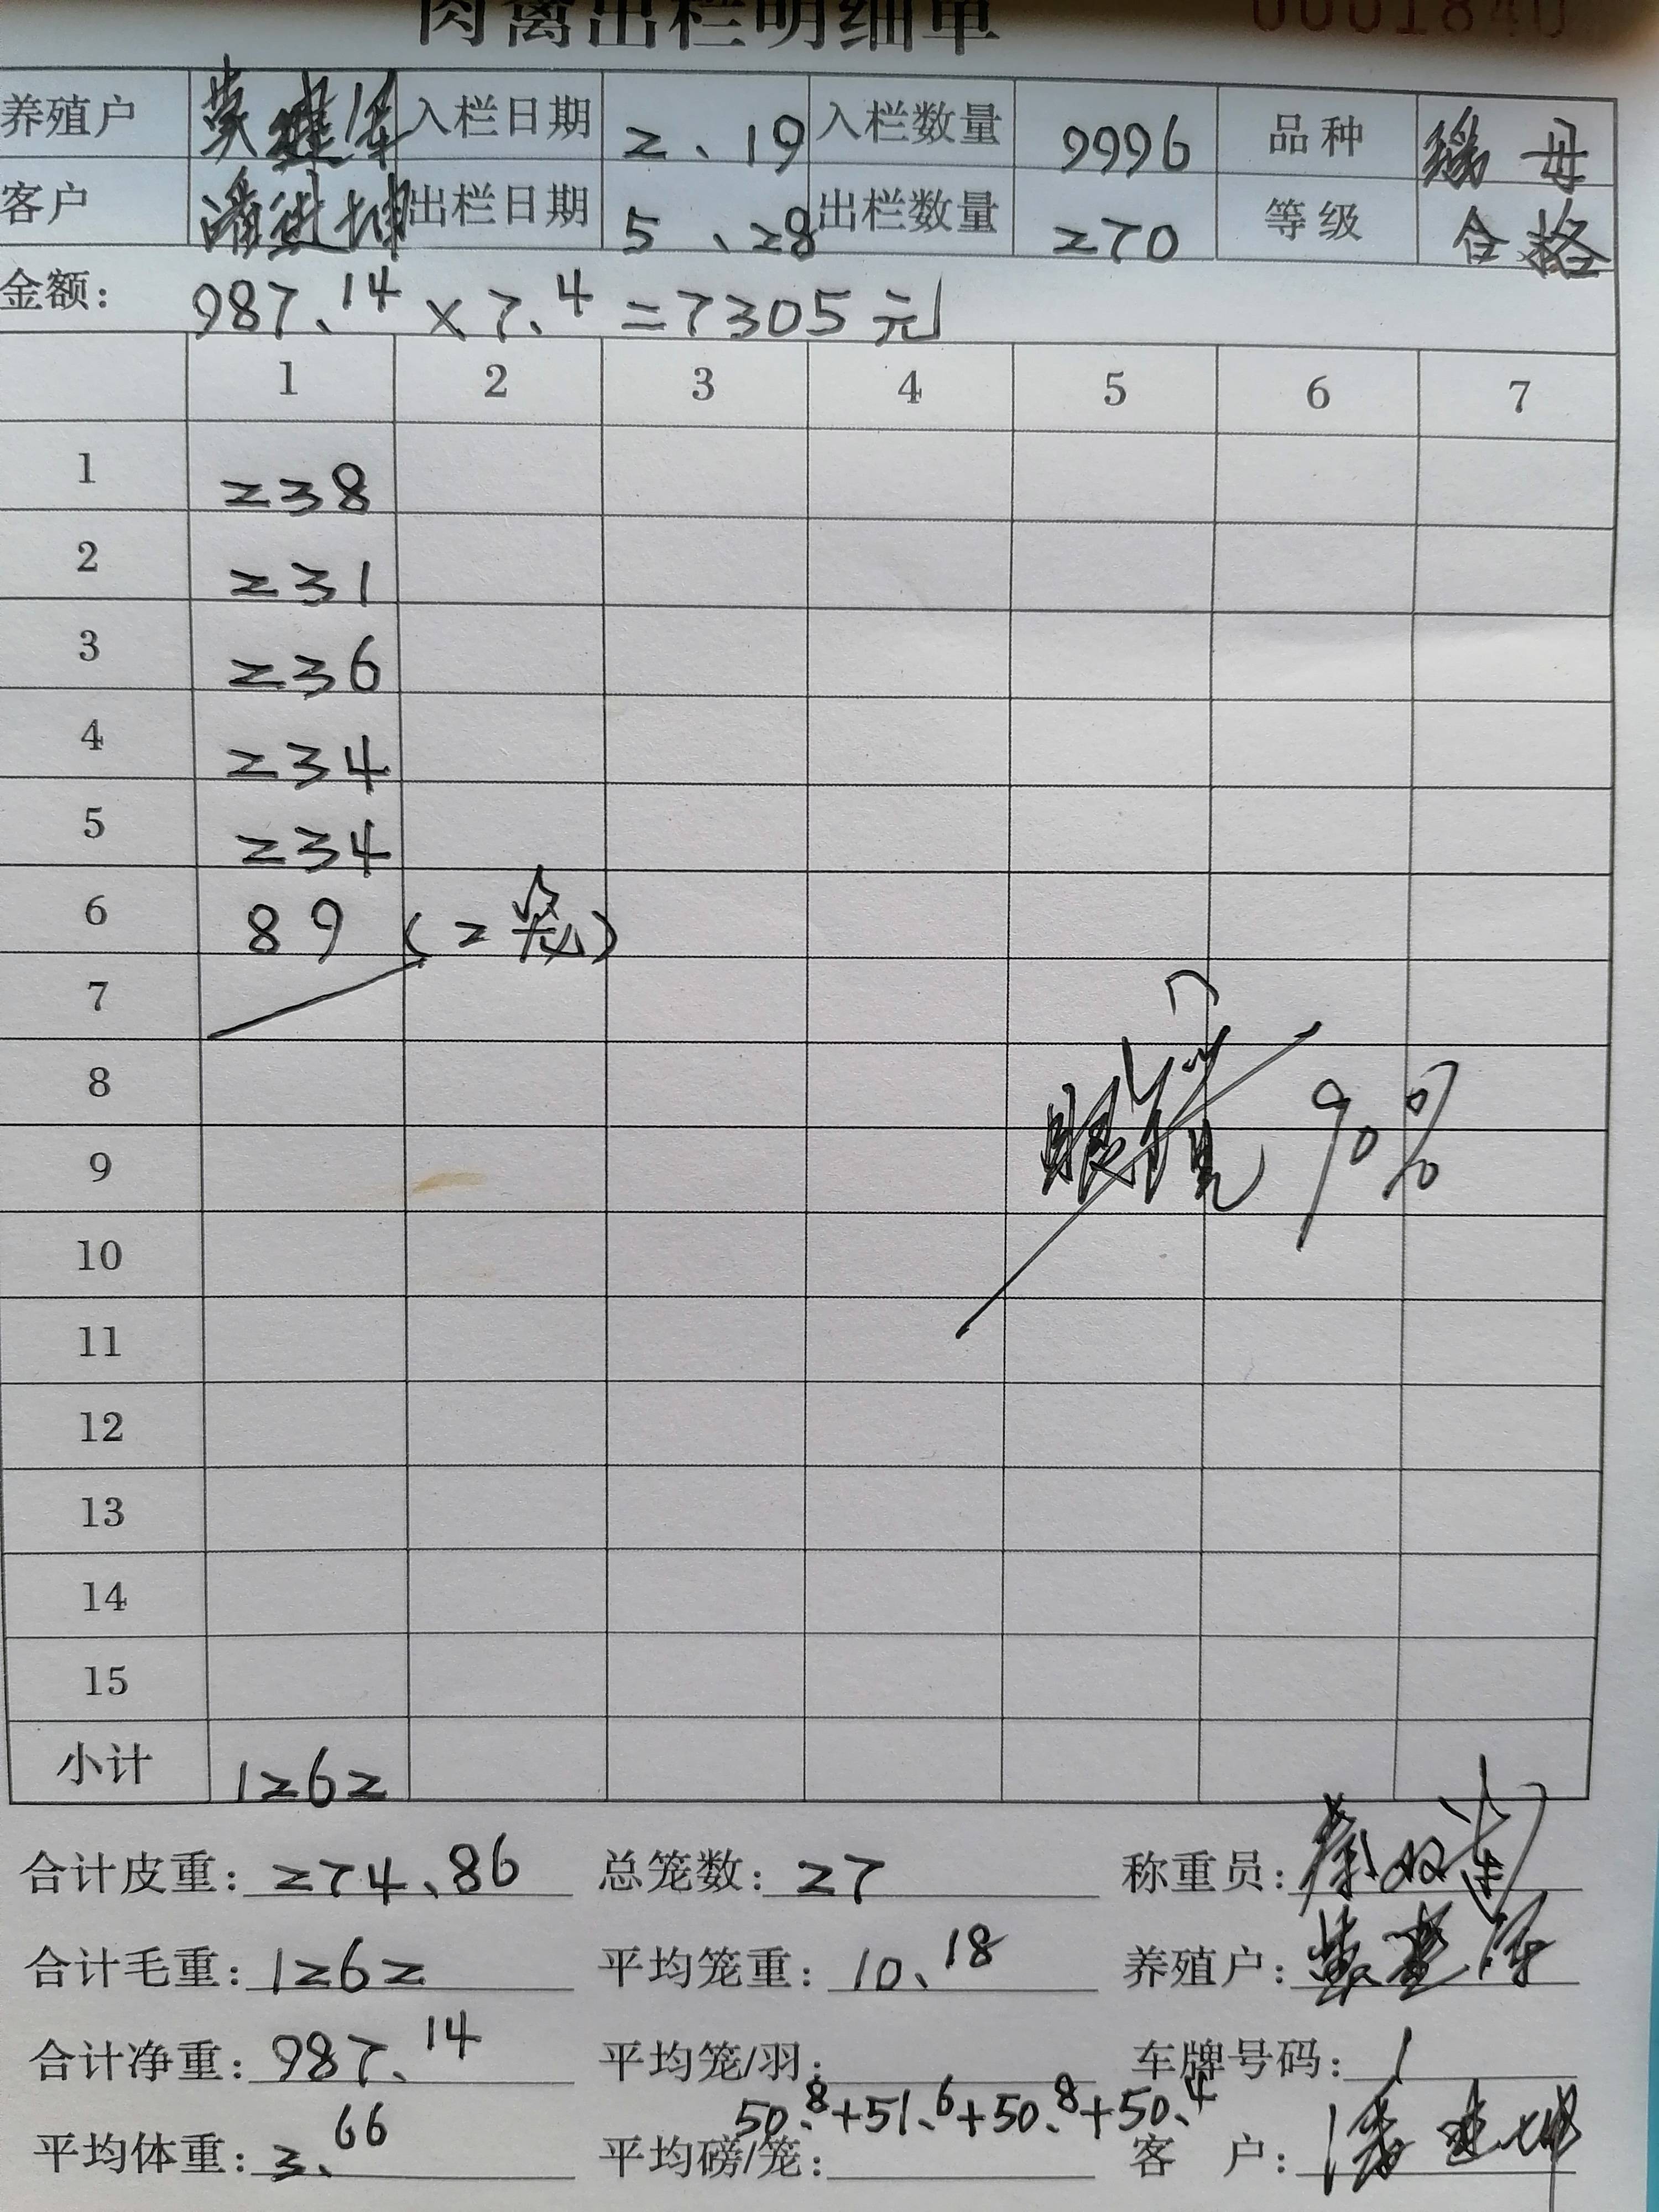 肉禽出栏明细单 0001840
养殖户 入栏日期 2、19 入栏数量 9996 品种 瑞母
客户 潘进坤 出栏日期 5、28 出栏数量 270 等级 合格
金额: 987、14 × 7、4 = 7305元
1 2 3 4 5 6 7
1 238
2 231
3 236
4 234
5 234
6 89 (2笼)
7
8
9 90%
10
11
12
13
14
15
小计 1262
合计皮重: 274、86 总笼数: 27 称重员:
合计毛重: 1262 平均笼重: 10、18 养殖户:
合计净重: 987、14 平均笼/羽: 车牌号码: 1
50、8+51、6+50、8+50、4
平均体重: 3、66 平均磅/笼: 客 户: 潘进坤